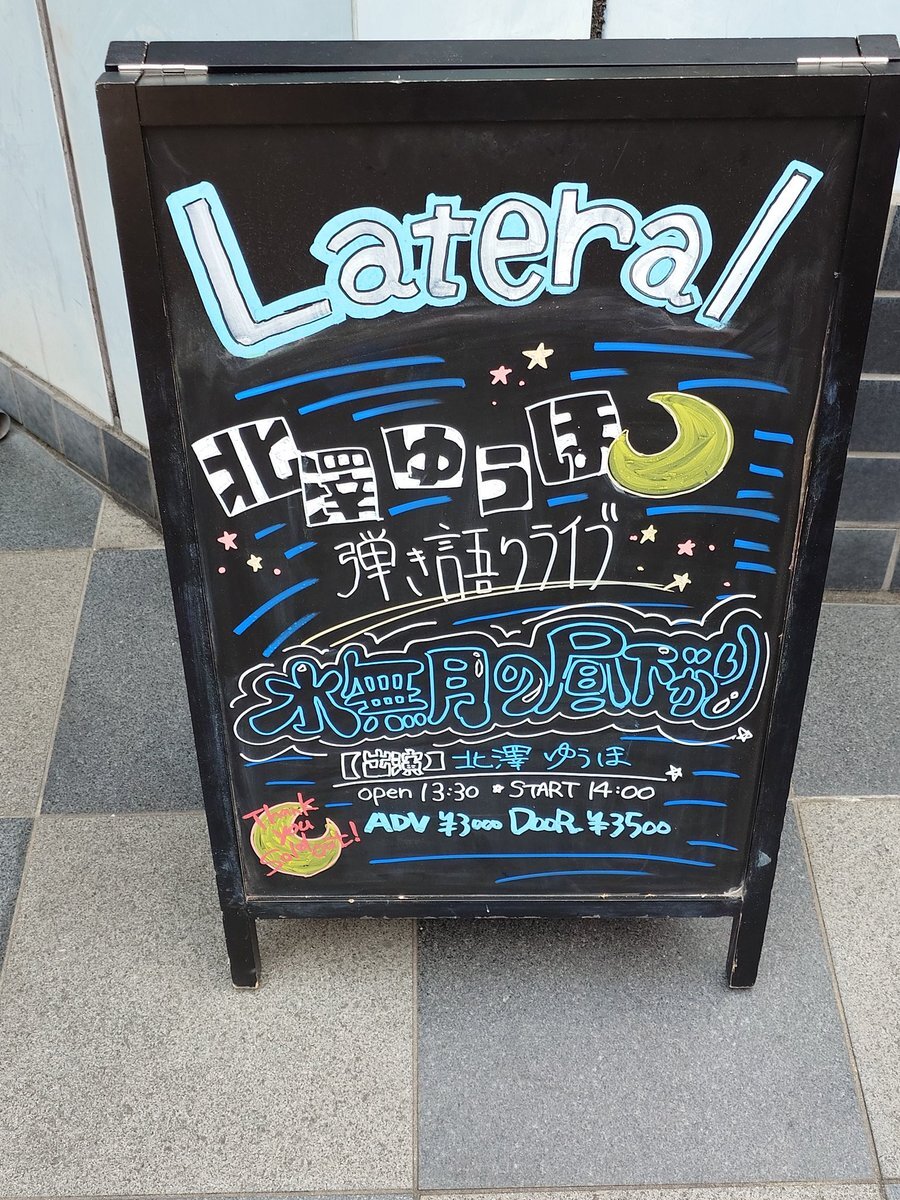 Lateral
北澤ゆうほ
弾き語りライブ
水無月の昼下がり
【出演】 北澤 ゆうほ
open 13:30 ★ START 14:00
ADV ¥3000 DOOR ¥3500
Thank
you
Sold out!